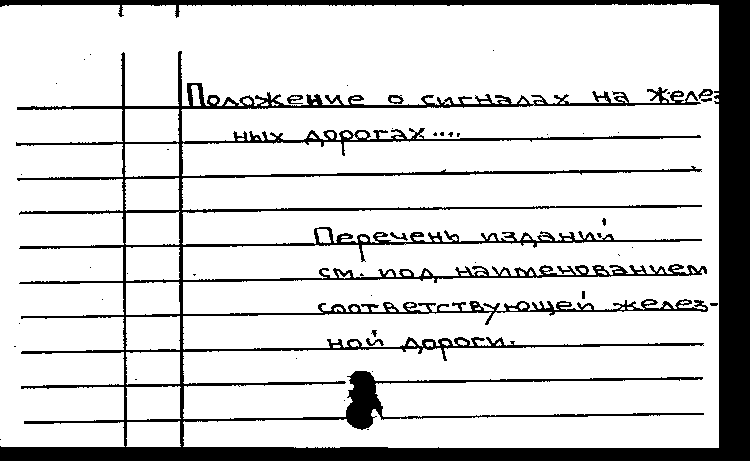 Положение о сигналах на желез
ных дорогах....
Перечень изданий
см. под наименованием
соответствующей желез-
ной дороги.